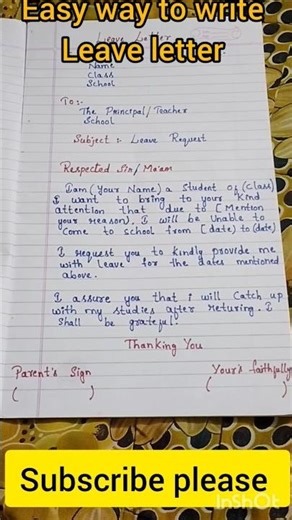 Easy way to write
Leave letter
Leave Letter
Name
Class
School
To :-
The Principal/Teacher
School
Subject :- Leave Request
Respected Sir/Ma'am
I am (Your Name) a Student of (Class)
I want to bring to your kind
attention that due to [Mention
your Reason). I will be Unable to
Come to school from [date) to (date)
I request you to kindly provide me
with leave for the dates mentioned
above.
I assure you that i will Catch up
with my studies after returing. I
Shall be grateful.
Thanking You
Parent's Sign
Your's faithfully
( )
( )
Subscribe please
InShOt